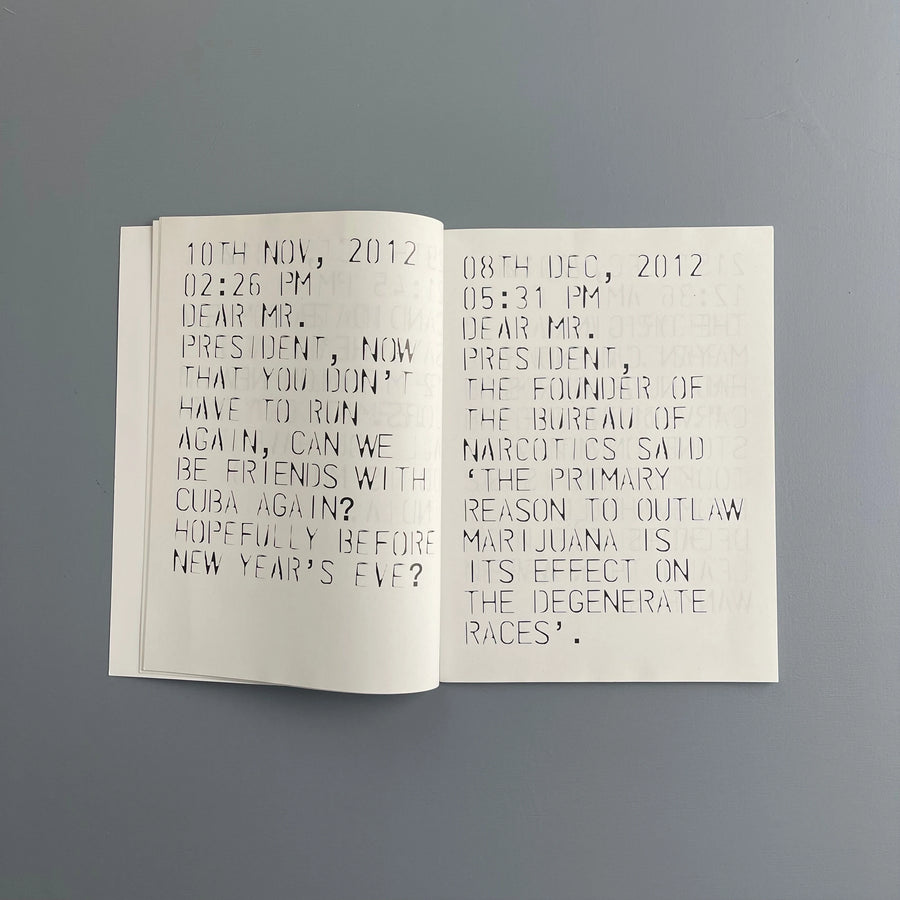 10TH NOV, 2012
02:26 PM
DEAR MR.
PRESIDENT, NOW
THAT YOU DON'T
HAVE TO RUN
AGAIN, CAN WE
BE FRIENDS WITH
CUBA AGAIN?
HOPEFULLY BEFORE
NEW YEAR'S EVE?
08TH DEC, 2012
05:31 PM
DEAR MR.
PRESIDENT,
THE FOUNDER OF
THE BUREAU OF
NARCOTICS SAID
‘THE PRIMARY
REASON TO OUTLAW
MARIJUANA IS
ITS EFFECT ON
THE DEGENERATE
RACES’.